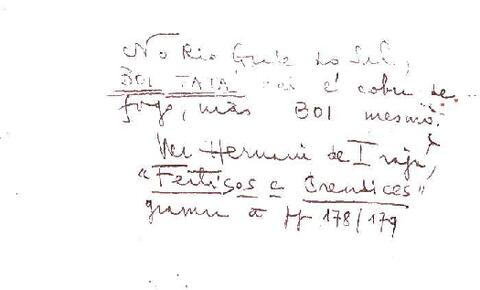 No Rio Gr. do Sul,
BOI TATÁ não é cobra de
fogo, mas BOI mesmo.
Ver Hernani de Irajá,
"Feitiços e Crendices"
gravura à pp 178/179